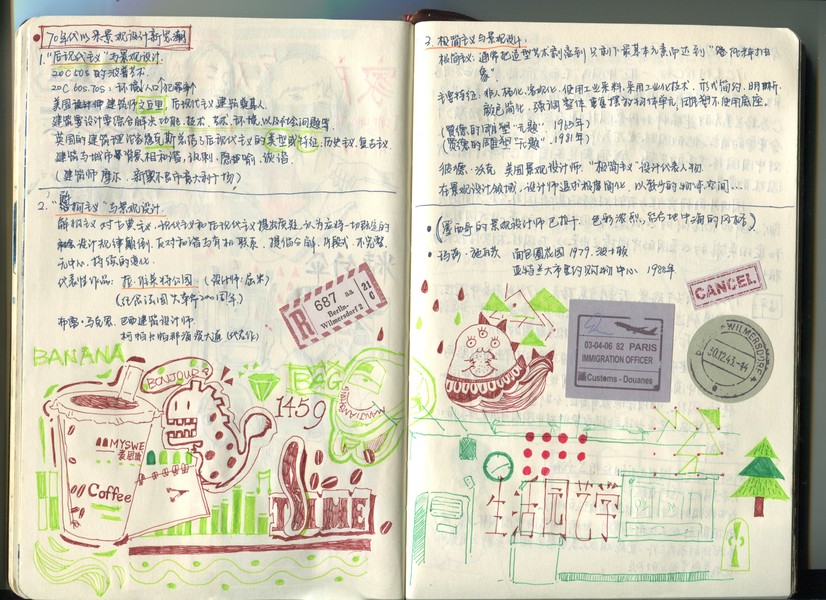 70年代以来景观设计新思潮
1. "后现代主义"与景观设计.
20C 60s 的波普艺术.
20C 60s.70s: 环境、人口、犯罪
美国 建筑师文丘里, 后现代主义建筑奠基人.
建筑要设计要综合解决功能、技术、艺术、环境、以及社会问题等.
英国的建筑理论家 后现代主义的类型或特征: 历史主义, 复古主义
建筑与城市背景相和谐、 隐喻
(建筑师 摩尔. 新奥尔良市意大利广场)
2. "结构主义"与景观设计.
解构主义 对古典主义、现代主义和后现代主义提出质疑, 认为应将一切既定的
设计规律颠倒, 反对 提倡分解、片段、不完整、
无中心、持续的变化.
代表性作品: 拉·维莱特公园 (设计师: 屈米)
(纪念法国大革命200周年)
布雷·马克思. 巴西建筑设计师.
柯帕卡帕那海滨大道 (代表作)
R 687 aa 21 c
Berlin-
Wilmersdorf 2
BANANA
BONJOUR?
BAG
1459
MYSWE
Coffee
TIME
3. 极简主义与景观设计.
极简主义: 通常把造型艺术剥离到只剩下最基本元素而达到"
象".
主要特征: 非人格化、客观化、使用工业材料、采用工业化技术、形式简约、明晰、
颜色简单、强调整体、重复 物体单元、 不使用底座.
(贾德的雕塑"无题". 1965年)
(贾德的雕塑"无题". 1981年)
彼德·沃克 美国景观设计师. "极简主义"设计代表人物.
在景观设计领域, 设计师追求极度简化, 以数少的 空间...
(墨西哥的景观设计师巴拉干 色彩浓烈, 结合地中海的风格)
玛莎·施瓦茨 面包圈花园 1979. 波士顿
亚特兰大市里约购物中心. 1988年
CANCEL
03-04-06 82 PARIS
IMMIGRATION OFFICER
Customs - Douanes
WILMERSDORF
30.12.43.-14
生活园艺学